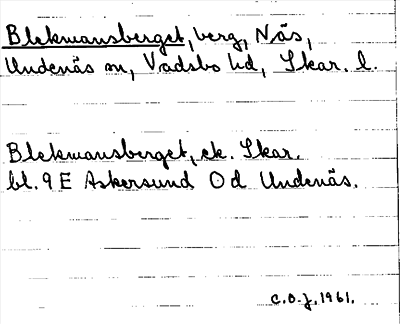 Blekmansberget, berg, Näs,
Undenäs sn, Vadsbo hd, Skar. l.
Blekmansberget, ek. Skar.
bl. 9 E Askersund O d Undenäs.
C.O.J. 1961.